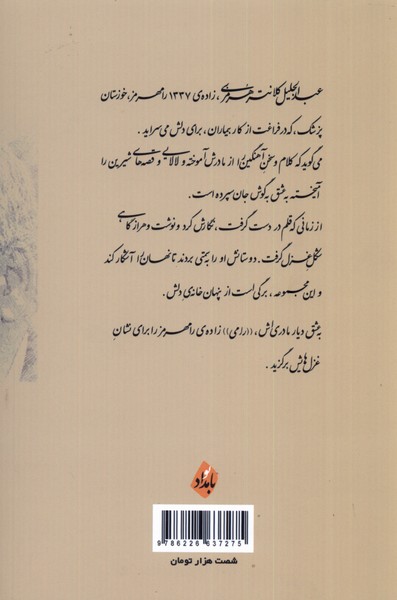 عبدالجلیل کلانتر هرمزی، زاده‌ی ۱۳۳۷ رامهرمز، خوزستان
پزشک، که در فراغت از کار بیماران، برای دلش می‌سراید .
می‌گوید که کلام و سخن آهنگین را از مادرش آموخته و لالایی و قصه‌های شیرین را
آمیخته به عشق به گوش جان سپرده است .
از زمانی که قلم در دست گرفت، نگارش کرد و نوشت و هر از گاهی
شکل غزل گرفت . دوستانش او را به‌ کردند تا نهان را آشکار کند
و این مجموعه، برگی است از پنهان خانه‌ی دلش .
به عشق دیار مادری‌اش، ((رامی)) زاده‌ی رامهرمز را برای نشان
غزل‌هایش برگزید .
بامداد
9 786226 637275
شصت هزار تومان